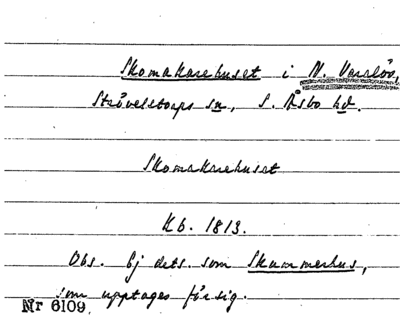 Skomakarehuset i N. Varalöv,
Strövelstorps sn, S. Åsbo hd.
Skomakarehuset
Kb. 1813.
Obs. Ej dets. som Skummarhus,
som upptages för sig.
Nr 6109